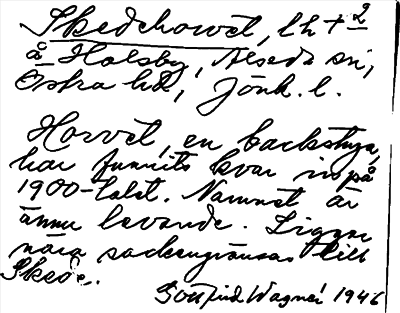 Skedehorvet, lht 2
å Holsby, Alseda sn,
Östra hd, Jönk. l.
Horvet, en backstuga,
har funnits kvar in på
1900-talet. Namnet är
ännu levande. Ligger
nära sockengränsen till
Skede.
Gottfrid Wagnér 1946